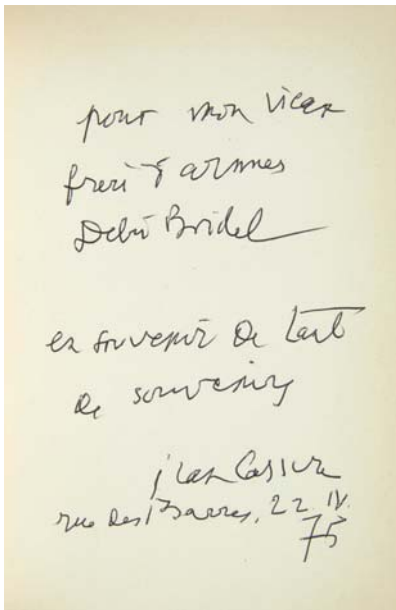 pour mon vieux
frère d'armes
Debû Bridel
en souvenir de tant
de souvenirs
Jean Cassou
rue des Barres, 22. IV.
75